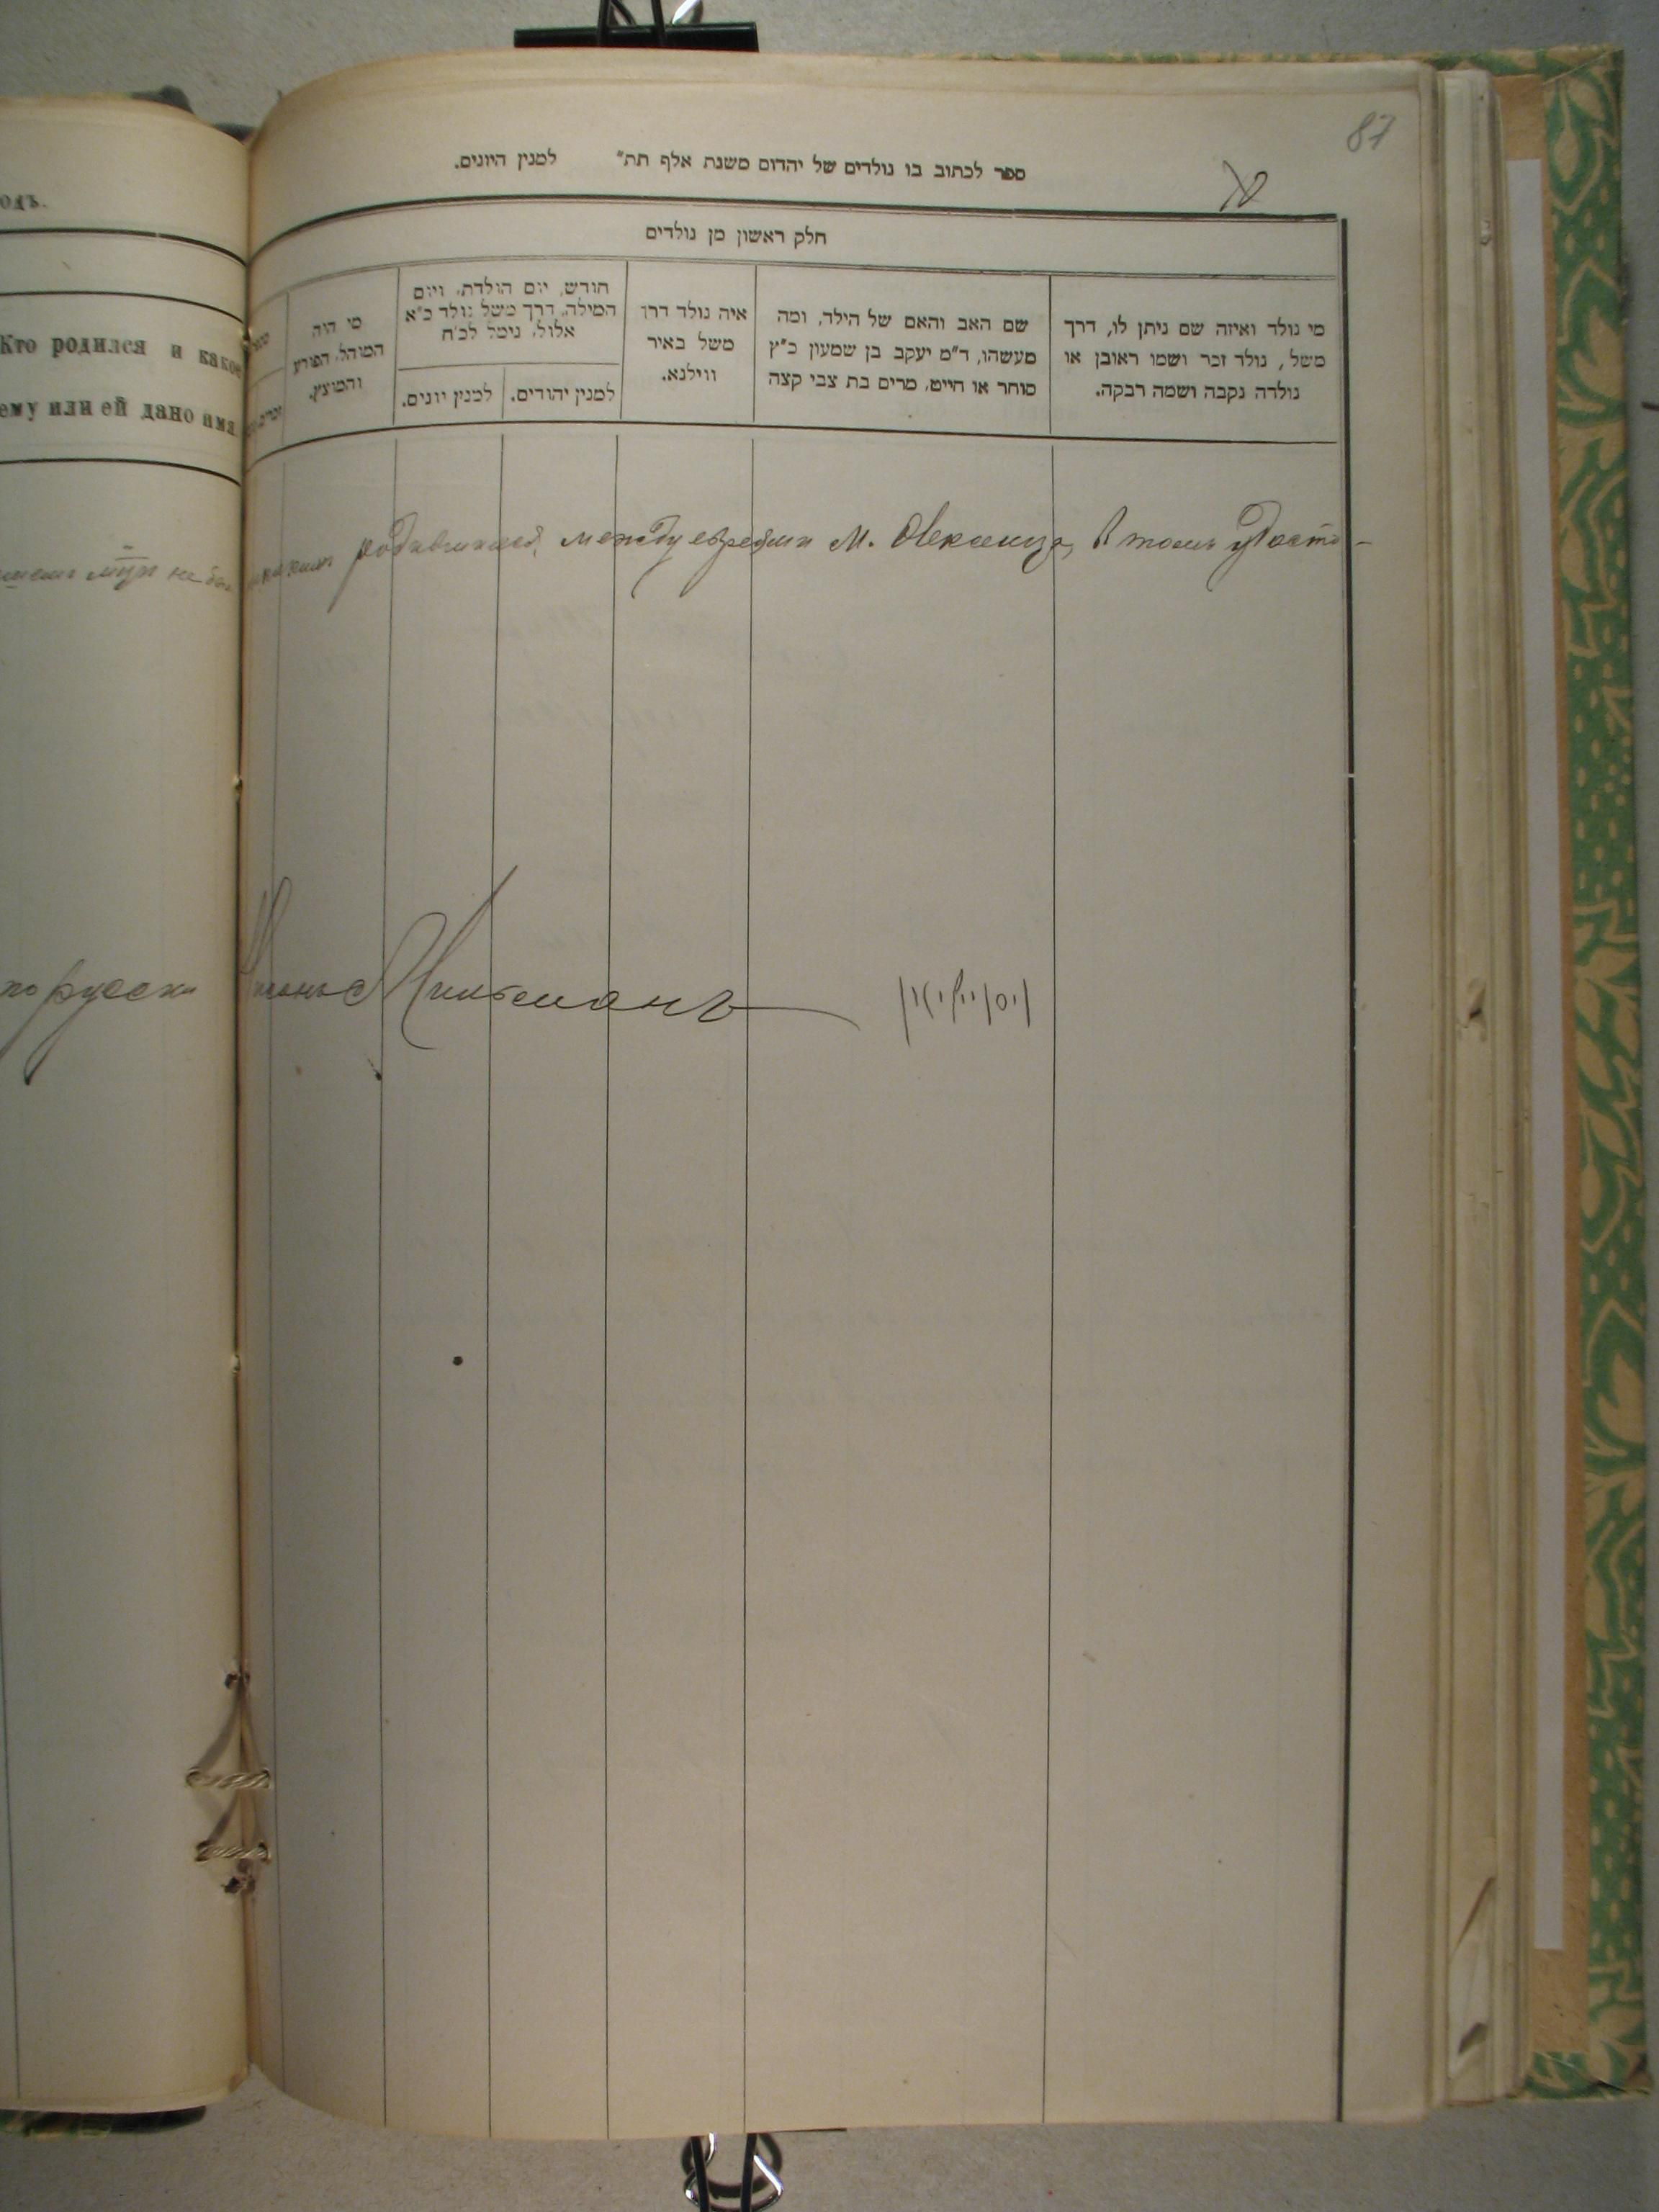 87
ספר לכתוב בו נולדים של יהדום משנת אלף תת" למנין היונים.
חלק ראשון מן נולדים
מי נולד ואיזה שם ניתן לו, דרך
משל, נולד זכר ושמו ראובן או
נולדה נקבה ושמה רבקה.
שם האב והאם של הילד, ומה
מעשהו, ד"מ יעקב בן שמעון כ"ץ
סוחר או חייט, מרים בת צבי קצה
איה נולד דרך
משל באיר
ווילנא.
חודש, יום הולדת, ויום
המילה, דרך משל נולד כ"א
אלול, נימל לכ"ח
למנין יהודים.
למנין יונים.
מי היה
המוהל, הפורע
והמוצץ.
одъ.
Кто родился и какое
ему или ей дано имя
не
родившихся между евреями м. в томъ удосто-
по русски